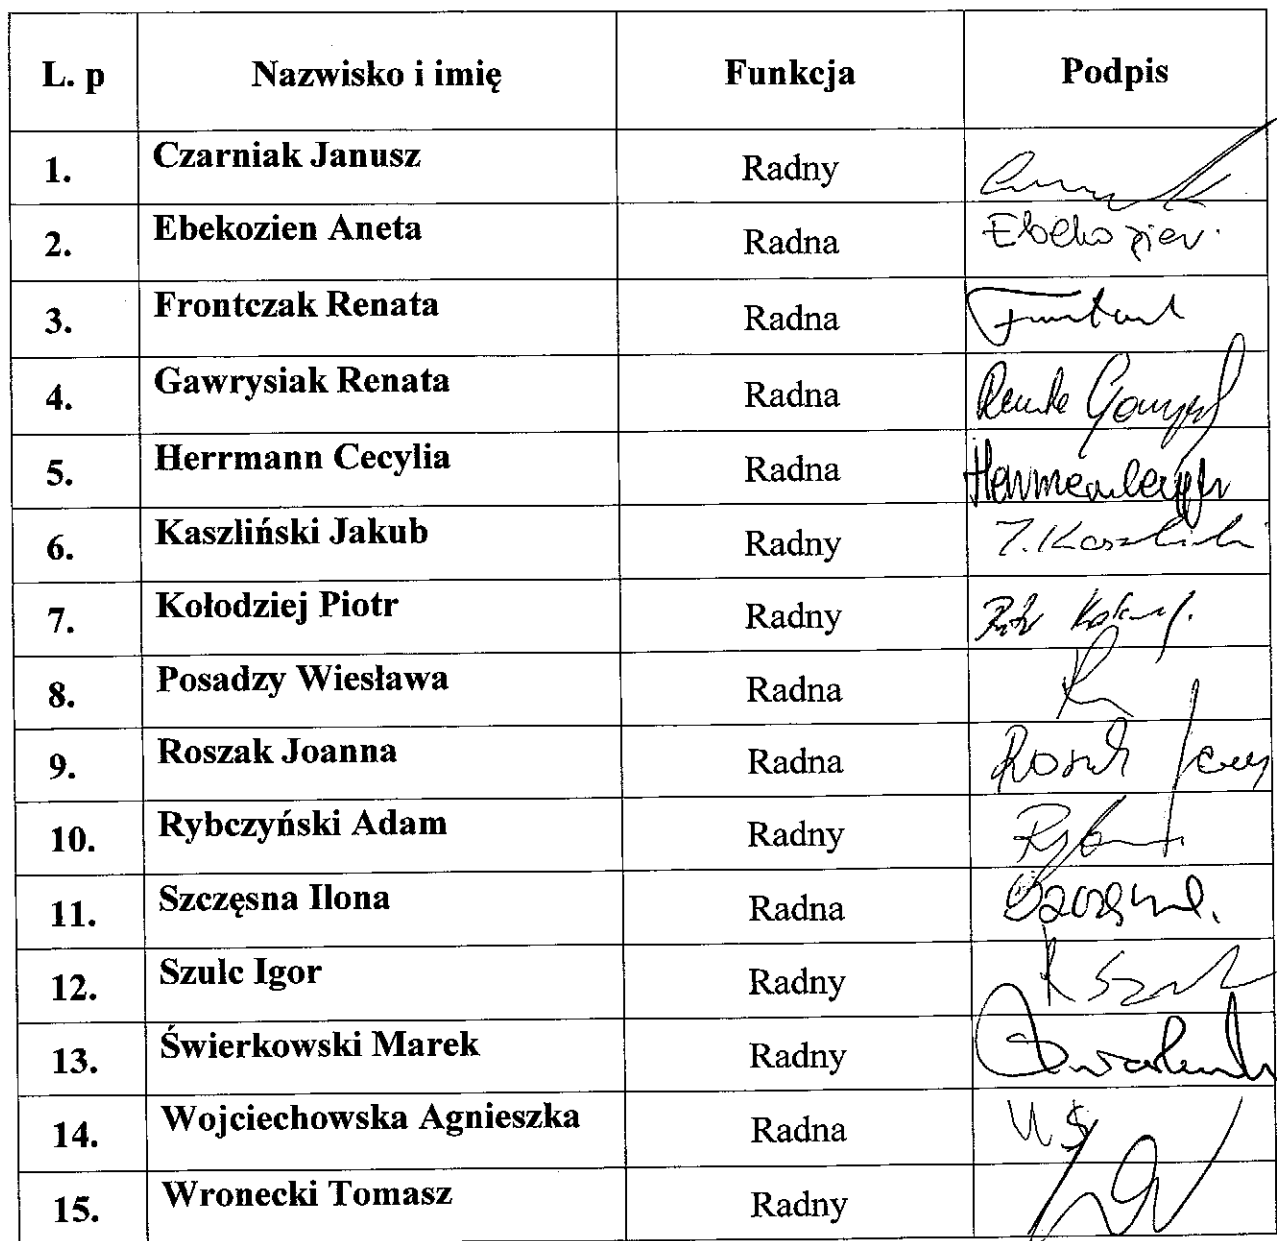 L. p Nazwisko i imię Funkcja Podpis
1. Czarniak Janusz Radny
2. Ebekozien Aneta Radna Ebekozien
3. Frontczak Renata Radna
4. Gawrysiak Renata Radna
5. Herrmann Cecylia Radna
6. Kaszliński Jakub Radny J. Kaszliński
7. Kołodziej Piotr Radny
8. Posadzy Wiesława Radna
9. Roszak Joanna Radna
10. Rybczyński Adam Radny
11. Szczęsna Ilona Radna
12. Szulc Igor Radny
13. Świerkowski Marek Radny
14. Wojciechowska Agnieszka Radna
15. Wronecki Tomasz Radny